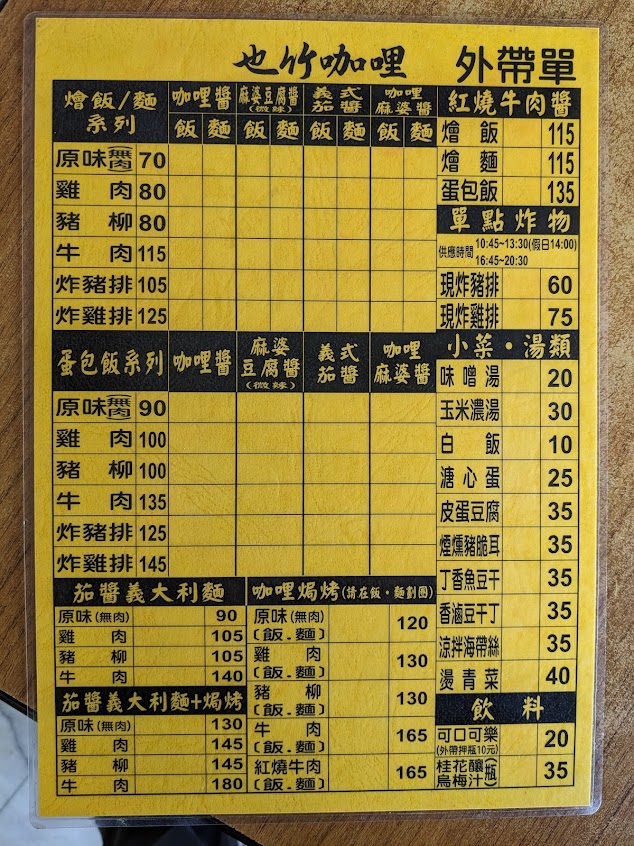 也竹咖哩 外帶單
燴飯/麵系列 咖哩醬 麻婆豆腐醬(微辣) 義式茄醬 咖哩麻婆醬
飯 麵 飯 麵 飯 麵 飯 麵
原味無肉 70
雞肉 80
豬柳 80
牛肉 115
炸豬排 105
炸雞排 125
蛋包飯系列 咖哩醬 麻婆豆腐醬(微辣) 義式茄醬 咖哩麻婆醬
原味無肉 90
雞肉 100
豬柳 100
牛肉 135
炸豬排 125
炸雞排 145
茄醬義大利麵
原味(無肉) 90
雞肉 105
豬柳 105
牛肉 140
茄醬義大利麵+焗烤
原味(無肉) 130
雞肉 145
豬柳 145
牛肉 180
咖哩焗烤(請在飯・麵劃圈)
原味(無肉) 120
(飯.麵)
雞肉 130
(飯.麵)
豬柳 130
(飯.麵)
牛肉 165
(飯.麵)
紅燒牛肉 165
(飯.麵)
紅燒牛肉醬
燴飯 115
燴麵 115
蛋包飯 135
單點炸物
供應時間 10:45~13:30(假日14:00)
16:45~20:30
現炸豬排 60
現炸雞排 75
小菜・湯類
味噌湯 20
玉米濃湯 30
白飯 10
溏心蛋 25
皮蛋豆腐 35
煙燻豬脆耳 35
丁香魚豆干 35
香滷豆干丁 35
涼拌海帶絲 35
燙青菜 40
飲料
可口可樂 20
(外帶押瓶10元)
桂花釀烏梅汁(瓶) 35